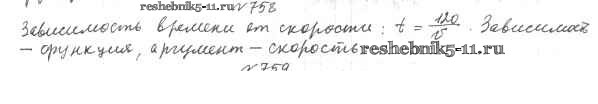 reshebnik5-11.ru №758
Зависимость времени от скорости: t = 120/v. Зависимость
– функция, аргумент – скорость reshebnik5-11.ru
№759